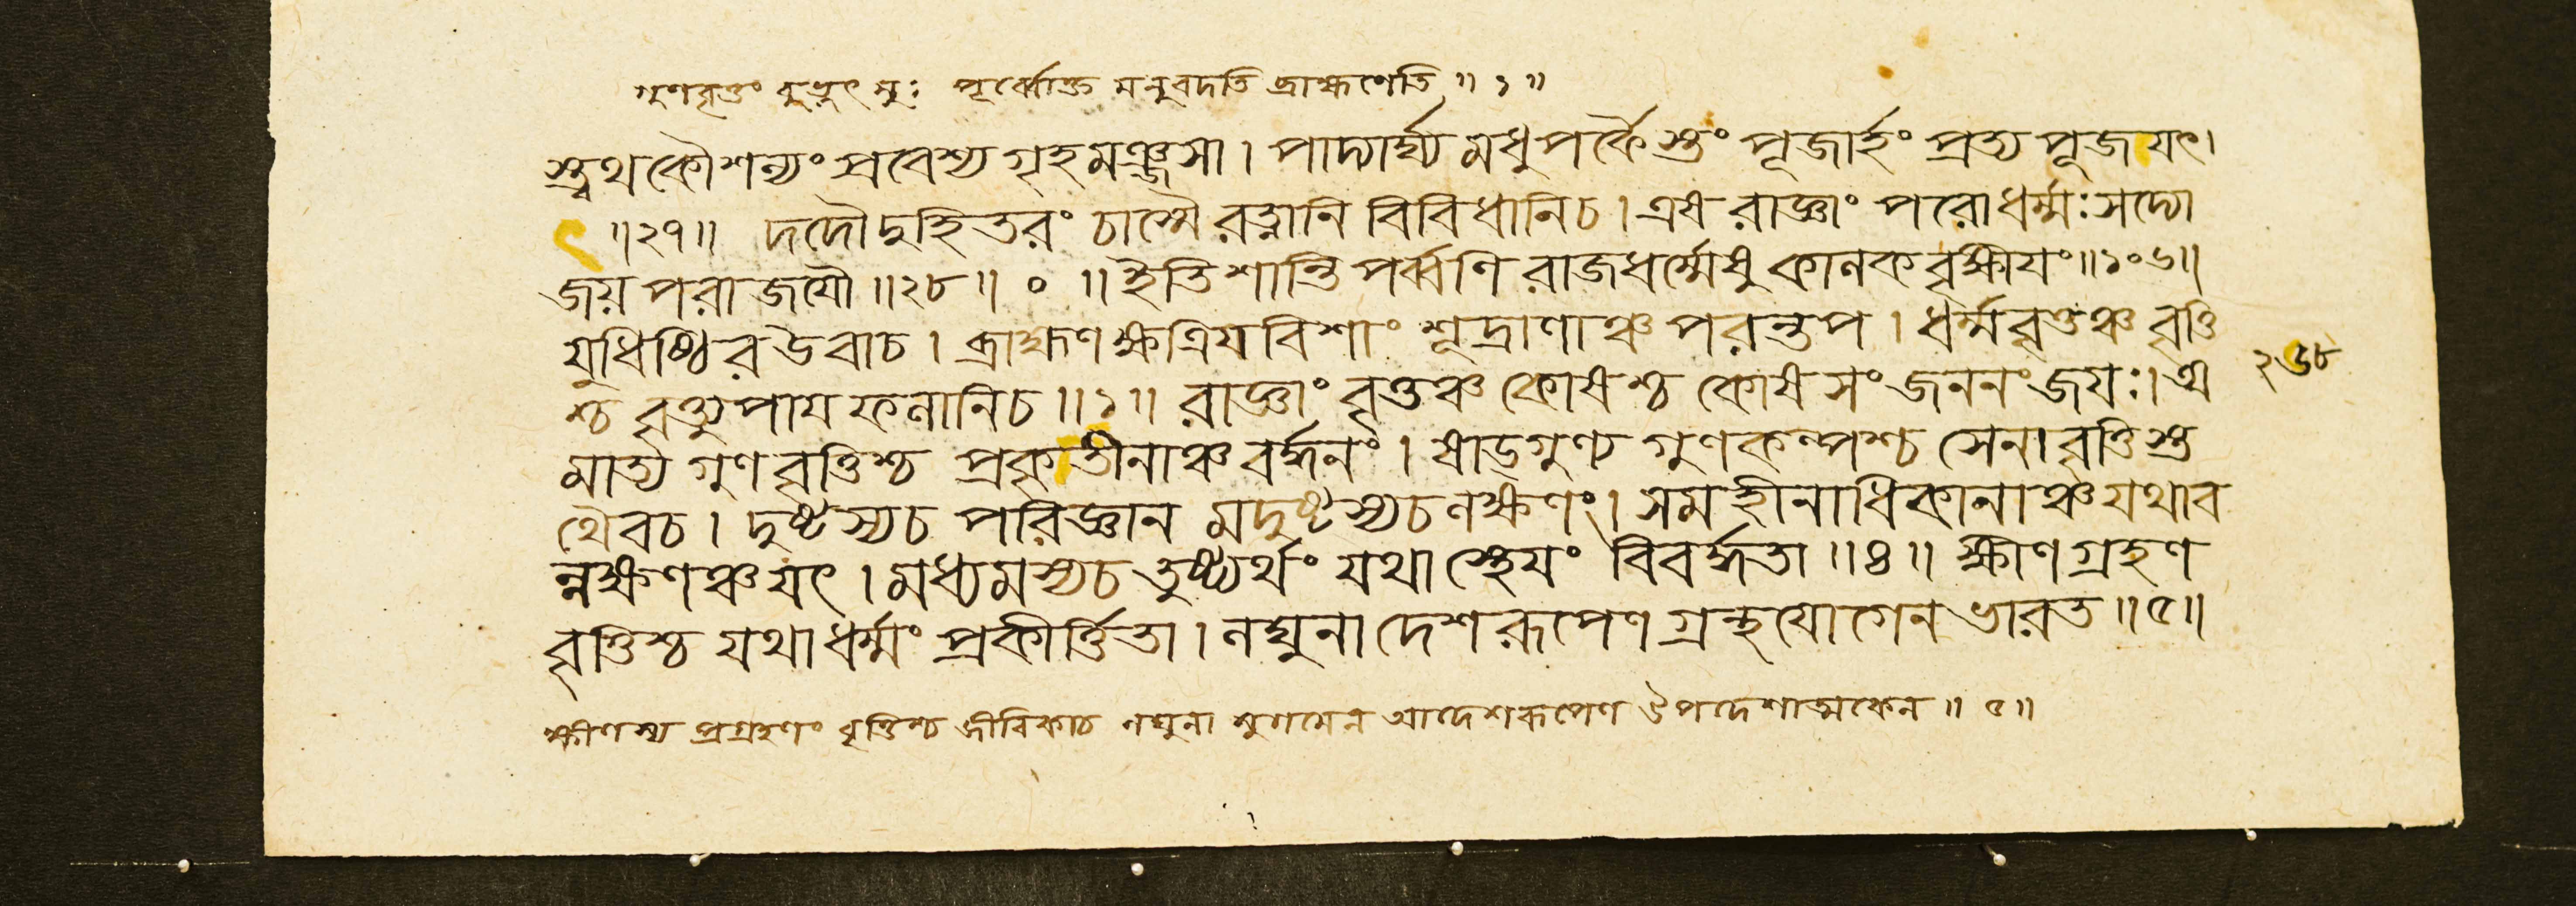 গুণবৃত্তং বুভুৎসুঃ পূর্ব্বোক্ত মনুবদতি ব্রাহ্মণেতি ॥ ১ ॥
স্ত্বথ কৌশল্যং প্রবেশ্য গৃহমঞ্জসা । পাদ্যার্ঘ্য মধুপর্কৈ স্তং পূজার্হং প্রত্য পূজযৎ ।
ৎ ॥২৭॥ দদৌ দুহিতরং চাস্মৈ রত্নানি বিবিধানিচ । এষ রাজ্ঞাং পরোধর্ম্মঃ সদ্যো
জয় পরাজযৌ ॥২৮॥ ০ ॥ ইতি শান্তি পর্ব্বণি রাজধর্ম্মেষু কালকবৃক্ষীযং ॥১০৬॥
যুধিষ্ঠির উবাচ । ব্রাহ্মণ ক্ষত্রিয বিশাং শূদ্রাণাঞ্চ পরন্তপ । ধর্ম্মবৃত্তঞ্চ বৃত্তি
শ্চ বৃত্ত্যুপায ফলানিচ ॥১॥ রাজ্ঞাং বৃত্তঞ্চ কোষশ্চ কোষ সংজননং জযঃ । অ
মাত্য গুণ বৃত্তিশ্চ প্রকৃতীনাঞ্চ বর্দ্ধনং । ষাড়গুণ্য গুণকল্পশ্চ সেনাবৃত্তি স্ত
থৈবচ । দুষ্টস্যচ পরিজ্ঞান মদুষ্টস্যচ লক্ষণং । সমহীনাধিকানাঞ্চ যথাব
ল্লক্ষণঞ্চ যৎ । মধ্যমস্যচ তুষ্ট্যর্থং যথা স্থেযং বিবর্দ্ধতা ॥৪॥ ক্ষীণ গ্রহণ
বৃত্তিশ্চ যথা ধর্ম্মং প্রকীর্ত্তিতা । লঘুনা দেশরূপেণ গ্রন্থযোগেন ভারত ॥৫॥
২৬৮
ক্ষীণস্য প্রগ্রহণং বৃত্তিশ্চ জীবিকাচ লঘুনা সুগমেন আদেশরূপেণ উপদেশাত্মকেন ॥ ৫ ॥